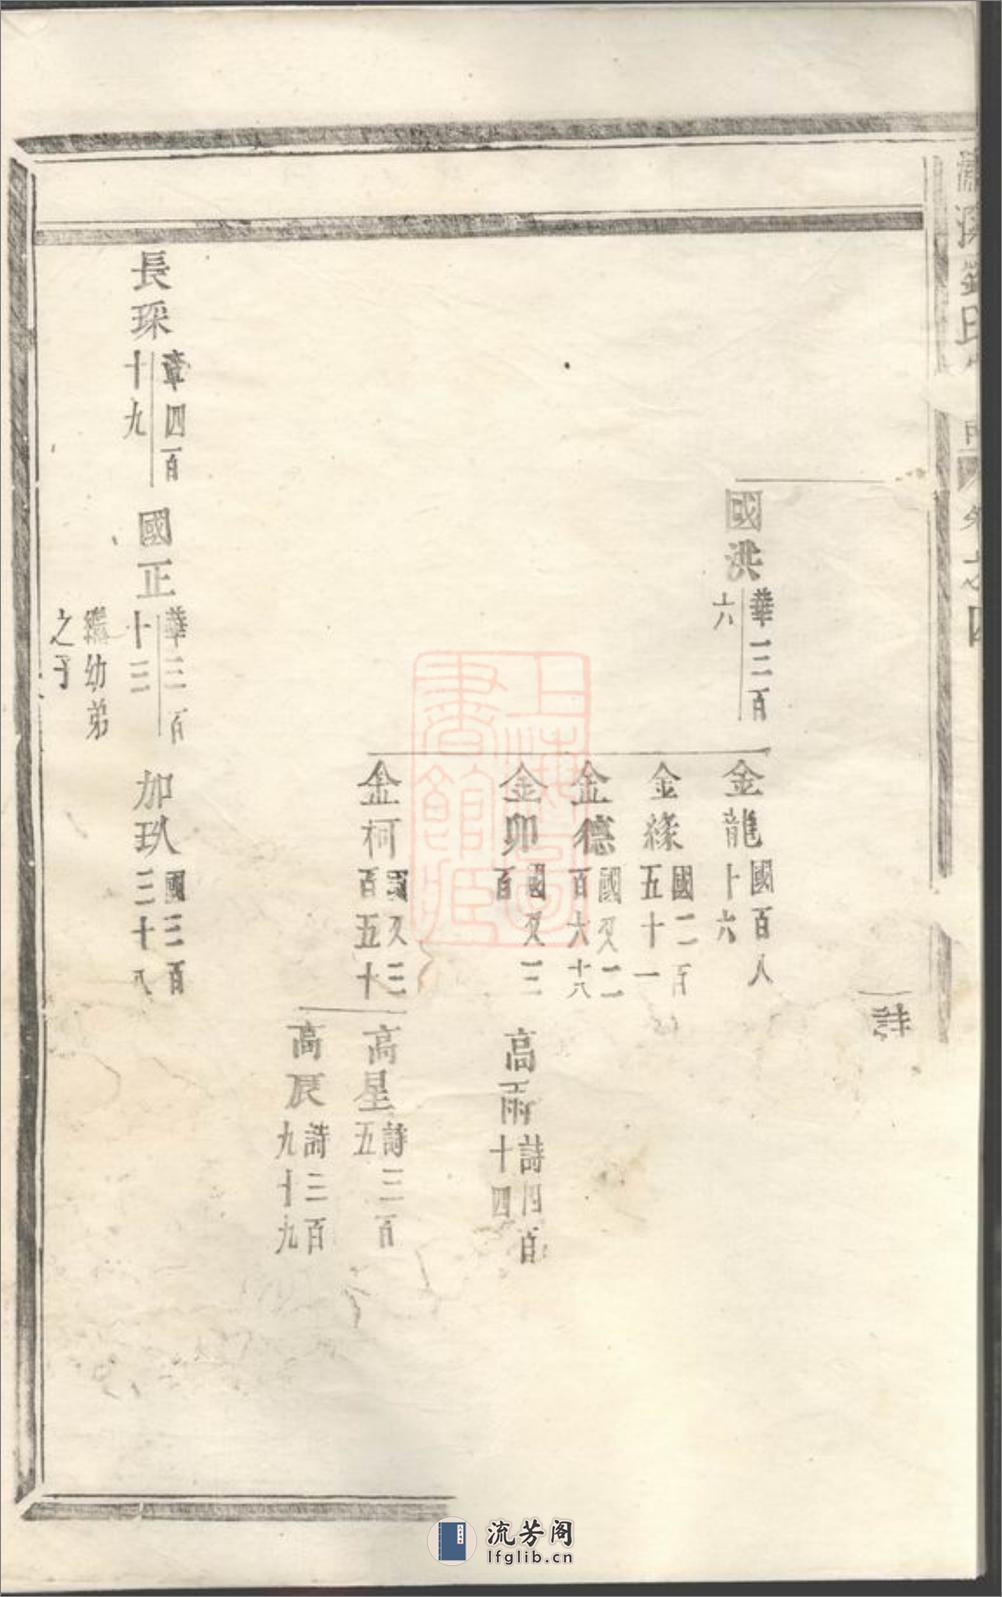 氏
卷之四
國洪
華三百
六
金龍
國百八
十六
金緣
國二百
五十一
金德
國又二
百六十八
金卯
國又三
百
高雨
詩四百
十四
金柯
國又三
百五十
高星
詩三百
五
高辰
詩三百
九十九
長琛
章四百
十九
國正
華三百
十三
繼幼弟
之子
加玖
國三百
三十八
上海圖
書館藏
流芳阁
lfglib.cn